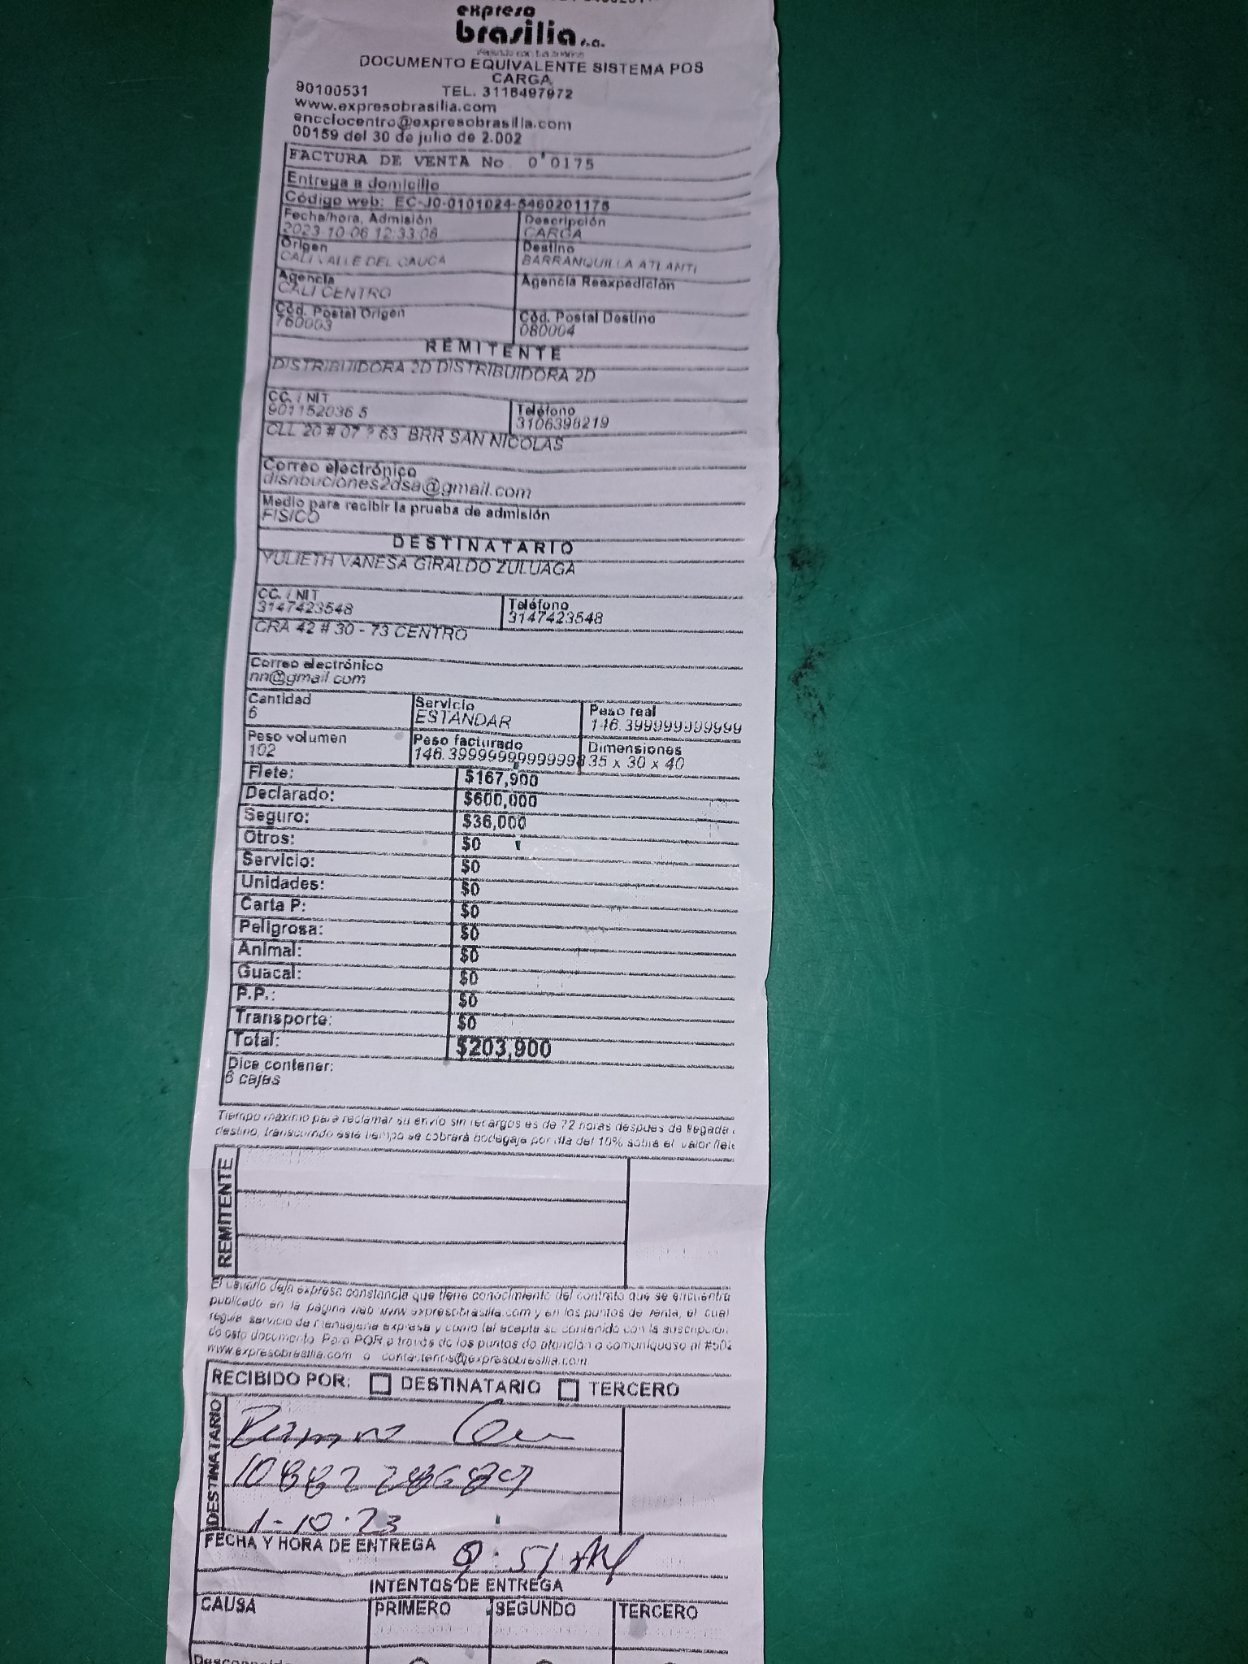 expreso
brasilia s.a.
DOCUMENTO EQUIVALENTE SISTEMA POS
CARGA
90100531 TEL. 3116497972
www.expresobrasilia.com
encclocentro@expresobrasilia.com
00159 del 30 de julio de 2.002
FACTURA DE VENTA No 0'0175
Entrega a domicilio
Código web: EC-J0-0101024-5460201175
Fecha/hora, Admisión Descripción
2023-10-06 12:33:08 CARGA
Origen Destino
CALI VALLE DEL CAUCA BARRANQUILLA ATLANTI
Agencia Agencia Reexpedición
CALI CENTRO
Cód. Postal Origen Cód. Postal Destino
760003 080004
REMITENTE
DISTRIBUIDORA 2D DISTRIBUIDORA 2D
CC. / NIT Teléfono
901152036 5 3106398219
CLL 20 # 07 ? 63 BRR SAN NICOLAS
Correo electrónico
disribuciones2dsa@gmail.com
Medio para recibir la prueba de admisión
FISICO
DESTINATARIO
YULIETH VANESA GIRALDO ZULUAGA
CC. / NIT Teléfono
3147423548 3147423548
CRA 42 # 30 - 73 CENTRO
Correo electrónico
nn@gmail.com
Cantidad Servicio Peso real
6 ESTANDAR 146.399999999999
Peso volumen Peso facturado Dimensiones
102 146.39999999999998 35 x 30 x 40
Flete: $167,900
Declarado: $600,000
Seguro: $36,000
Otros: $0
Servicio: $0
Unidades: $0
Carta P: $0
Peligrosa: $0
Animal: $0
Guacal: $0
P.P.: $0
Transporte: $0
Total: $203,900
Dice contener:
6 cajas
Tiempo máximo para reclamar su envío sin recargos es de 72 horas después de llegada
destino, transcurrido este tiempo se cobrará bodegaje por día del 10% sobre el valor flete
REMITENTE
El usuario deja expresa constancia que tiene conocimiento del contrato que se encuentra
publicado en la página web www.expresobrasilia.com y en los puntos de venta, el cual
regula servicio de mensajería expresa y como tal acepta su contenido con la suscripción
de este documento. Para PQR a través de los puntos de atención o comuníquese al #502
www.expresobrasilia.com o contactenos@expresobrasilia.com
RECIBIDO POR: DESTINATARIO TERCERO
DESTINATARIO
1-10-23
FECHA Y HORA DE ENTREGA 9:51 AM
INTENTOS DE ENTREGA
CAUSA PRIMERO SEGUNDO TERCERO